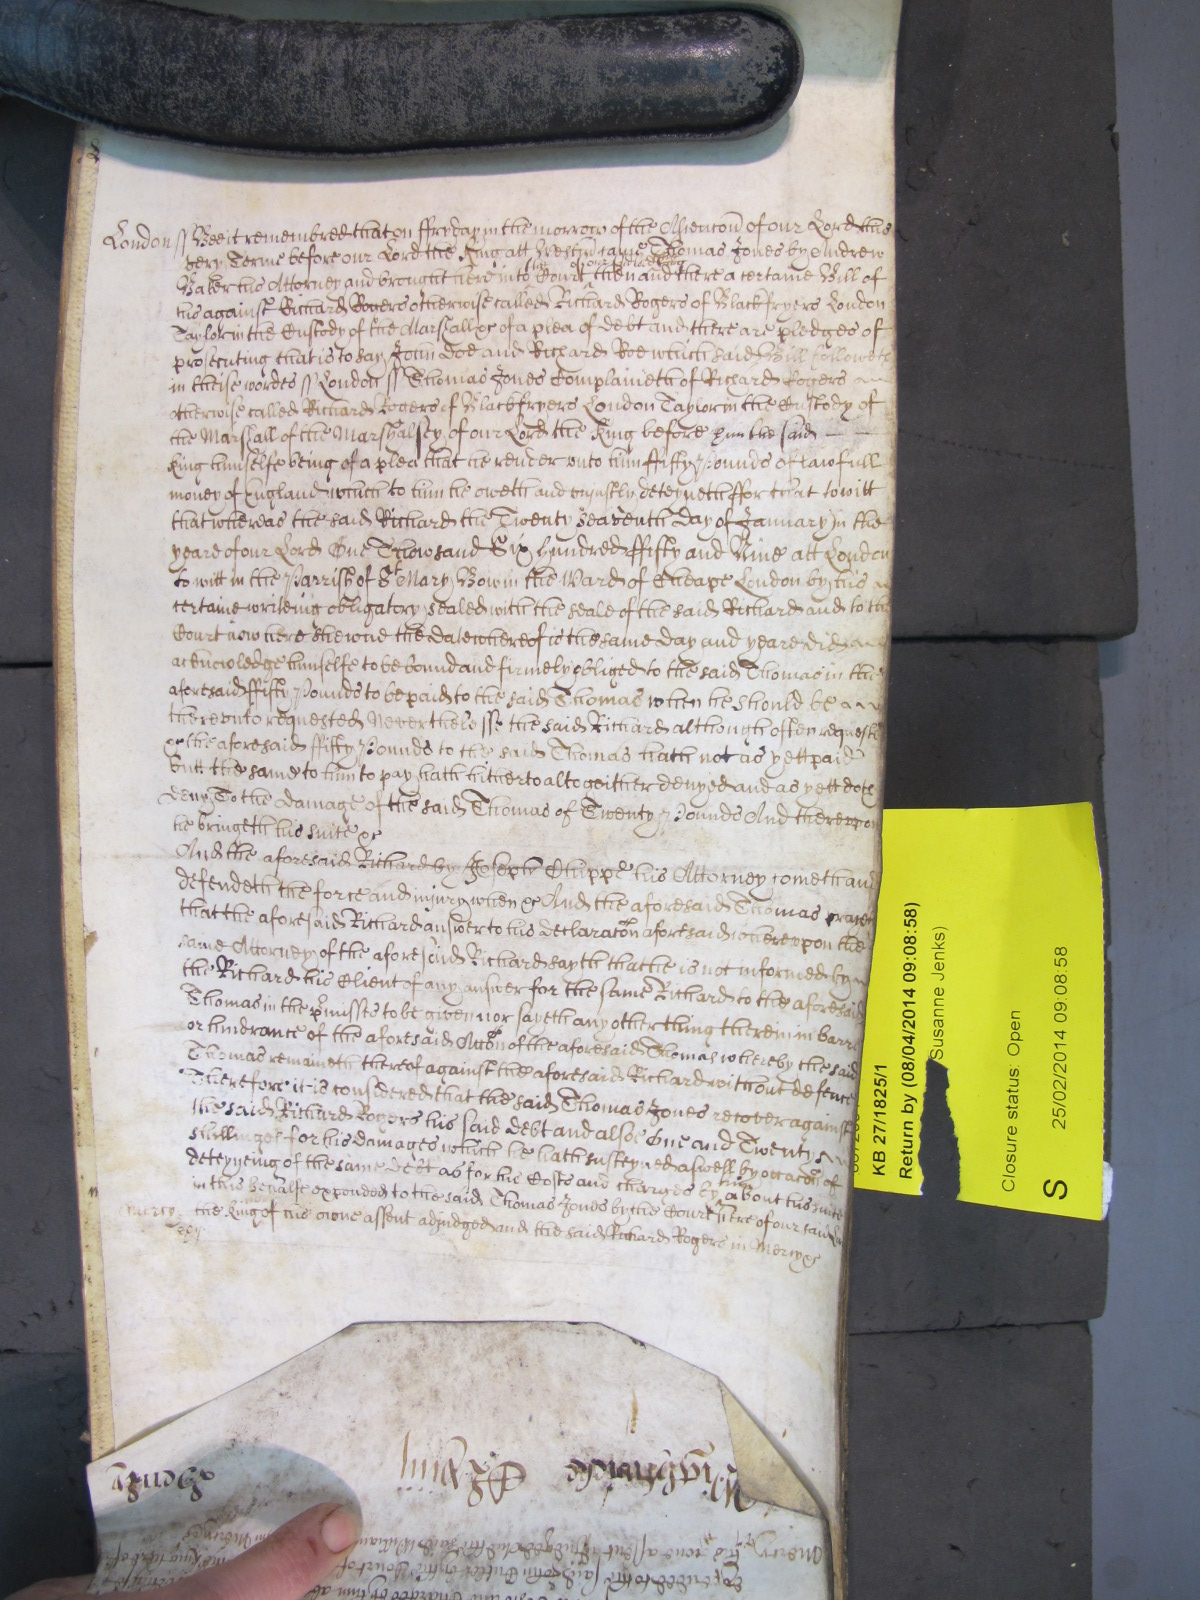 London ss Bee it remembred that on ffryday in the morrow of the Ascencon of our Lord this
very Terme before our Lord the King att Westm came Thomas Jones by Andrew
Baker his Attorney and brought here into the Court then and there a certaine Bill of
his against Richard Rogers otherwise called Richard Rogers of Blackfryers London
Taylor in the Custody of the Marshall &c of a plea of debt and there are pledges of
prosecuting that is to say John Doe and Richard Roe which said Bill followeth
in theise wordes ss London ss Thomas Jones Complaineth of Richard Rogers
otherwise called Richard Rogers of Blackfryers London Taylor in the Custody of
the Marshall of the Marshalsey of our Lord the King before him the said
King himselfe being of a plea that he render unto him ffifty Pounds of lawfull
money of England which to him he oweth and unjustly deteyneth ffor that to witt
that whereas the said Richard the Twenty Seaventh Day of January in the
yeare of our Lord One Thowsand Six Hundred ffifty and Nine att London
to witt in the Parrish of St Mary Bow in the Ward of Cheape London by his
certaine writeing obligatory sealed with the seale of the said Richard and to the
Court now here shewne the date whereof is the same day and yeare did
acknowledge himselfe to be bound and firmely obliged to the said Thomas in the
aforesaid ffifty Pounds to be paid to the said Thomas when he should be
thereunto requested Neverthelesse the said Richard although often requested
&c the aforesaid ffifty Pounds to the said Thomas hath not as yett paid
butt the same to him to pay hath hitherto altogeither denyed and as yett doth
deny To the damage of the said Thomas of Twenty Pounds And thereupon
he bringeth his suite &c
And the aforesaid Richard by Joseph his Attorney cometh and
defendeth the force and injury when &c And the aforesaid Thomas prayeth
that the aforesaid Richard answer to his declaracon aforesaid whereupon the
same Attorney of the aforesaid Richard sayth that he is not informed by
the Richard his Client of any answer for the same Richard to the aforesaid
Thomas in the pmisses to be given nor sayeth any other thing therein in barre
or hindrance of the aforesaid Accon of the aforesaid Thomas whereby the said
Thomas remaineth thereof against the aforesaid Richard without defence
Therefore it is considered that the said Thomas Jones recover against
the said Richard Rogers his said debt and alsoe One and Twenty
shillinges for his damages which he hath susteyned aswell by occacon of
deteyneing of the same debt as for his Costs and charges by him about his suite
in this behalfe expended to the said Thomas Jones by the Court here of our said Lord
the King of his owne assent adjudged and the said Richard Rogers in Mercy &c
Mercy
KB 27/1825/1
Return by (08/04/2014 09:08:58)
Susanne Jenks)
Closure status: Open
S
25/02/2014 09:08:58